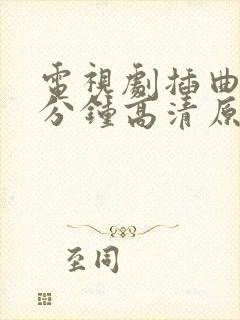 電視劇插曲
分鐘高清原
至同